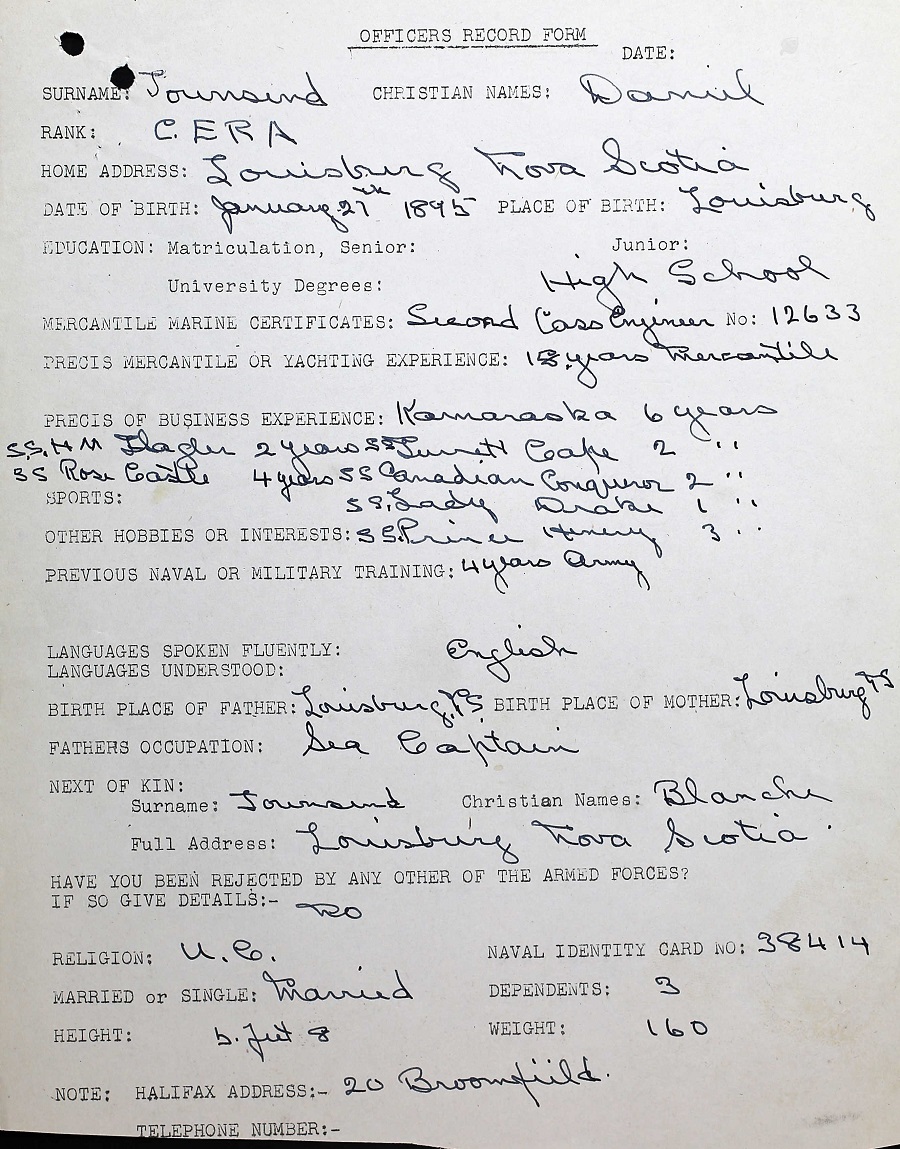 OFFICERS RECORD FORM
DATE:
SURNAME: Townsend CHRISTIAN NAMES: Daniel
RANK: C.ERA
HOME ADDRESS: Louisburg Nova Scotia
DATE OF BIRTH: January 27th 1895 PLACE OF BIRTH: Louisburg
EDUCATION: Matriculation, Senior: Junior:
University Degrees: High School
MERCANTILE MARINE CERTIFICATES: Second Class Engineer No: 12633
PRECIS MERCANTILE OR YACHTING EXPERIENCE: 18 years Mercantile
PRECIS OF BUSINESS EXPERIENCE: Kamaraska 6 years
SS. H M Flagler 2 years SS Turrett Cape 2 "
SS Rose Castle 4 years SS Canadian Conqueror 2 "
SPORTS: SS. Lady Drake 1 "
OTHER HOBBIES OR INTERESTS: SS. Prince Henery 3 "
PREVIOUS NAVAL OR MILITARY TRAINING: 4 years Army
LANGUAGES SPOKEN FLUENTLY: English
LANGUAGES UNDERSTOOD:
BIRTH PLACE OF FATHER: Louisburg, NS BIRTH PLACE OF MOTHER: Louisburg NS
FATHERS OCCUPATION: Sea Captain
NEXT OF KIN:
Surname: Townsend Christian Names: Blanche
Full Address: Louisburg Nova Scotia
HAVE YOU BEEN REJECTED BY ANY OTHER OF THE ARMED FORCES?
IF SO GIVE DETAILS:- No
RELIGION: U.C. NAVAL IDENTITY CARD NO: 38414
MARRIED or SINGLE: Married DEPENDENTS: 3
HEIGHT: 5. feet 8 WEIGHT: 160
NOTE: HALIFAX ADDRESS:- 20 Broomfield.
TELEPHONE NUMBER:-